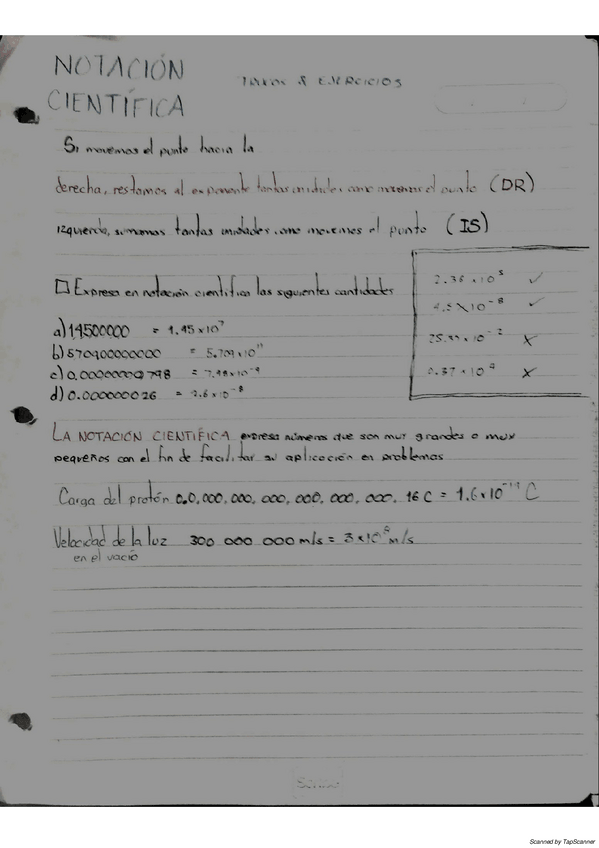 NOTACIÓN
CIENTÍFICA
TRUCOS & EJERCICIOS
Si movemos el punto hacia la
derecha, restamos al exponente tantas unidades como movemos el punto (DR)
izquierda, sumamos tantas unidades como movemos el punto (IS)
□ Expresa en notación científica las siguientes cantidades
a) 14500000 = 1.45 x 10⁷
b) 570900000000 = 5.709 x 10¹¹
c) 0.00000000798 = 7.98 x 10⁻⁹
d) 0.000000026 = 2.6 x 10⁻⁸
2.36 x 10⁵ ✓
x 10⁻⁸ ✓
x 10⁻² ✗
0.37 x 10⁴ ✗
LA NOTACIÓN CIENTÍFICA expresa números que son muy grandes o muy
pequeños con el fin de facilitar su aplicación en problemas
Carga del protón 0.0,000,000,000,000,000,000,16 C = 1.6 x 10⁻¹⁹ C
Velocidad de la luz 300 000 000 m/s = 3 x 10⁸ m/s
en el vacío
Scanned by TapScanner